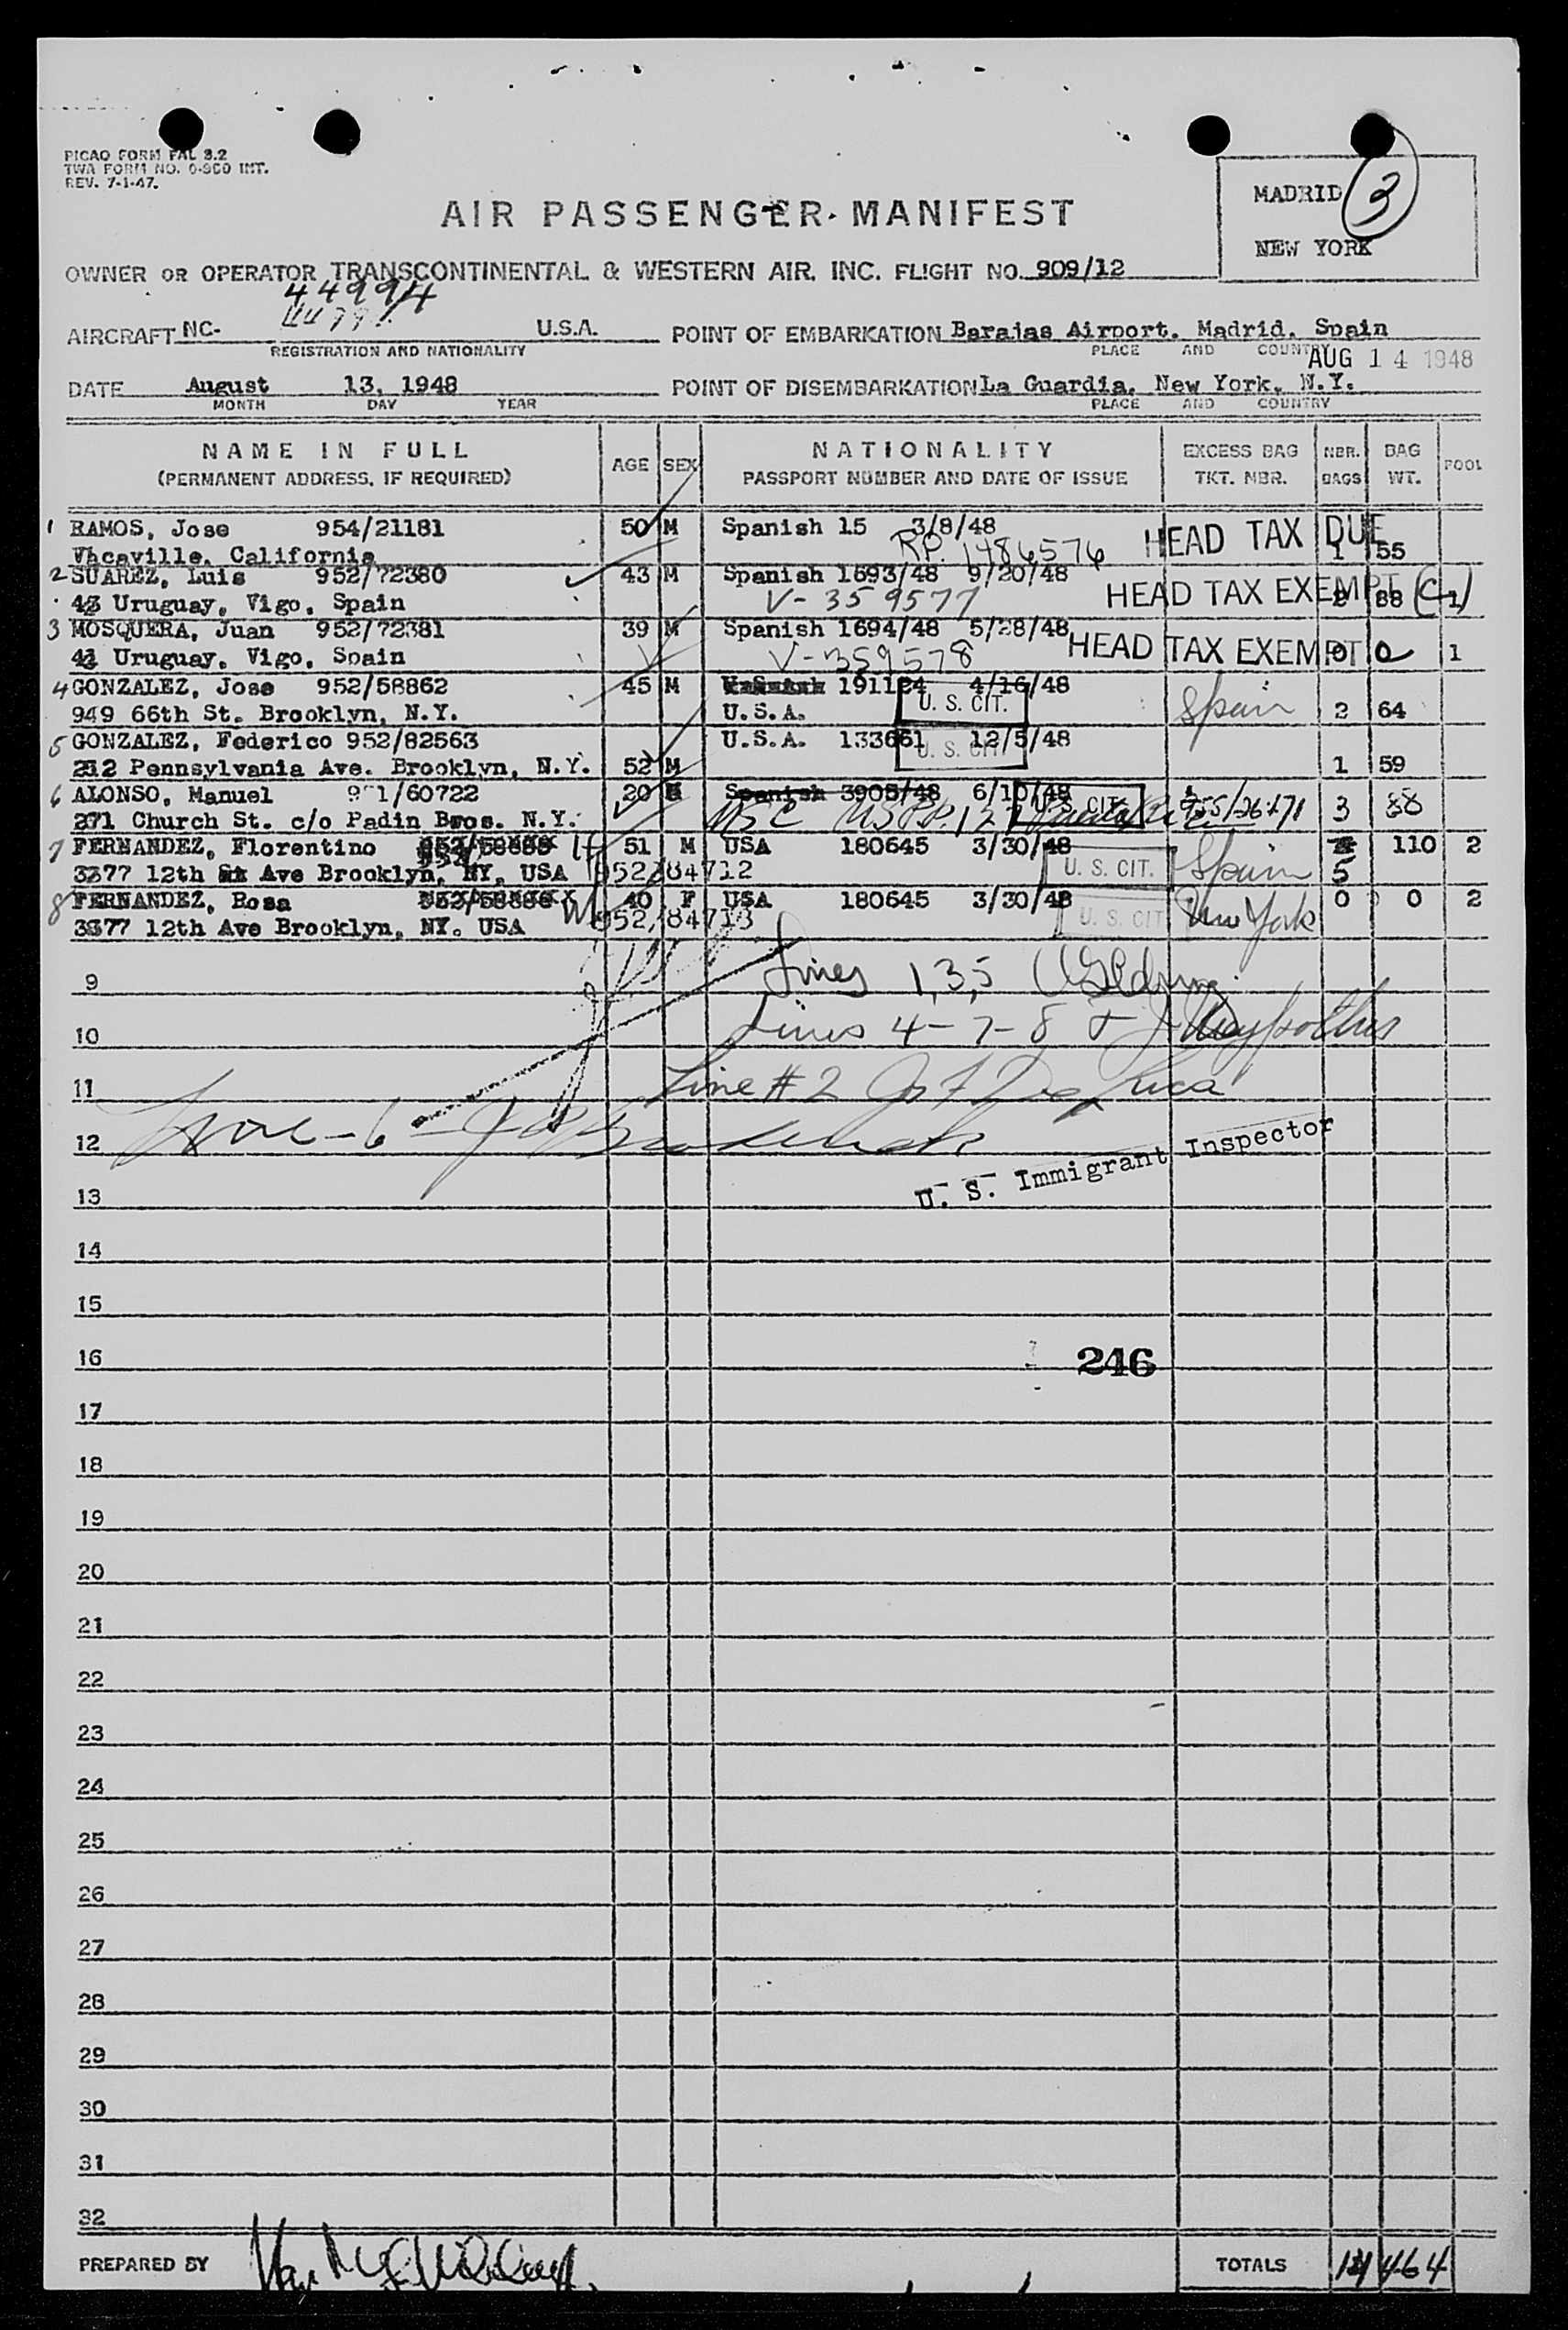 PICAO FORM FAL 3.2
TWA FORM NO. 0-960 INT.
REV. 7-1-47.
MADRID 3
NEW YORK
AIR PASSENGER MANIFEST
OWNER OR OPERATOR TRANSCONTINENTAL & WESTERN AIR. INC. FLIGHT NO. 909/12
44994
AIRCRAFT NC- U.S.A. POINT OF EMBARKATION Barajas Airport. Madrid. Spain
REGISTRATION AND NATIONALITY PLACE AND COUNTRY
AUG 14 1948
DATE August 13, 1948 POINT OF DISEMBARKATION La Guardia, New York, N.Y.
MONTH DAY YEAR PLACE AND COUNTRY
NAME IN FULL AGE SEX NATIONALITY EXCESS BAG NBR. BAG POOL
(PERMANENT ADDRESS, IF REQUIRED) PASSPORT NUMBER AND DATE OF ISSUE TKT. NBR. BAGS WT.
1 RAMOS, Jose 954/21181 50 M Spanish 15 3/8/48 HEAD TAX DUE
Vacaville, California RP. 1486576 1 55
2 SUAREZ, Luis 952/72380 43 M Spanish 1693/48 9/20/48 HEAD TAX EXEMPT
Uruguay, Vigo, Spain V-359577 88 1
3 MOSQUERA, Juan 952/72381 39 M Spanish 1694/48 5/28/48 HEAD TAX EXEMPT
Uruguay, Vigo, Spain V-359578 0 0 1
4 GONZALEZ, Jose 952/58862 45 M 191124 4/16/48 Spain
949 66th St. Brooklyn, N.Y. U.S.A. U. S. CIT. 2 64
5 GONZALEZ, Federico 952/82563 U.S.A. 133661 12/5/48
212 Pennsylvania Ave. Brooklyn, N.Y. 52 M U. S. CIT. 1 59
6 ALONSO, Manuel 951/60722 20 M Spanish 3905/48 6/10/48 U. S. CIT. 3 88
271 Church St. c/o Padin Bros. N.Y. USC
7 FERNANDEZ, Florentino 51 M USA 180645 3/30/48 110 2
3377 12th Ave Brooklyn, NY, USA 952/84712 U. S. CIT. Spain 5
8 FERNANDEZ, Rosa 40 F USA 180645 3/30/48 0 0 2
3377 12th Ave Brooklyn, NY. USA 952/84713 U. S. CIT New York
9 Lines 1,3,5
10 Lines 4-7-8
11 Line #2
12 Line-6
U. S. Immigrant Inspector
13
14
15
16 246
17
18
19
20
21
22
23
24
25
26
27
28
29
30
31
32
PREPARED BY TOTALS 464